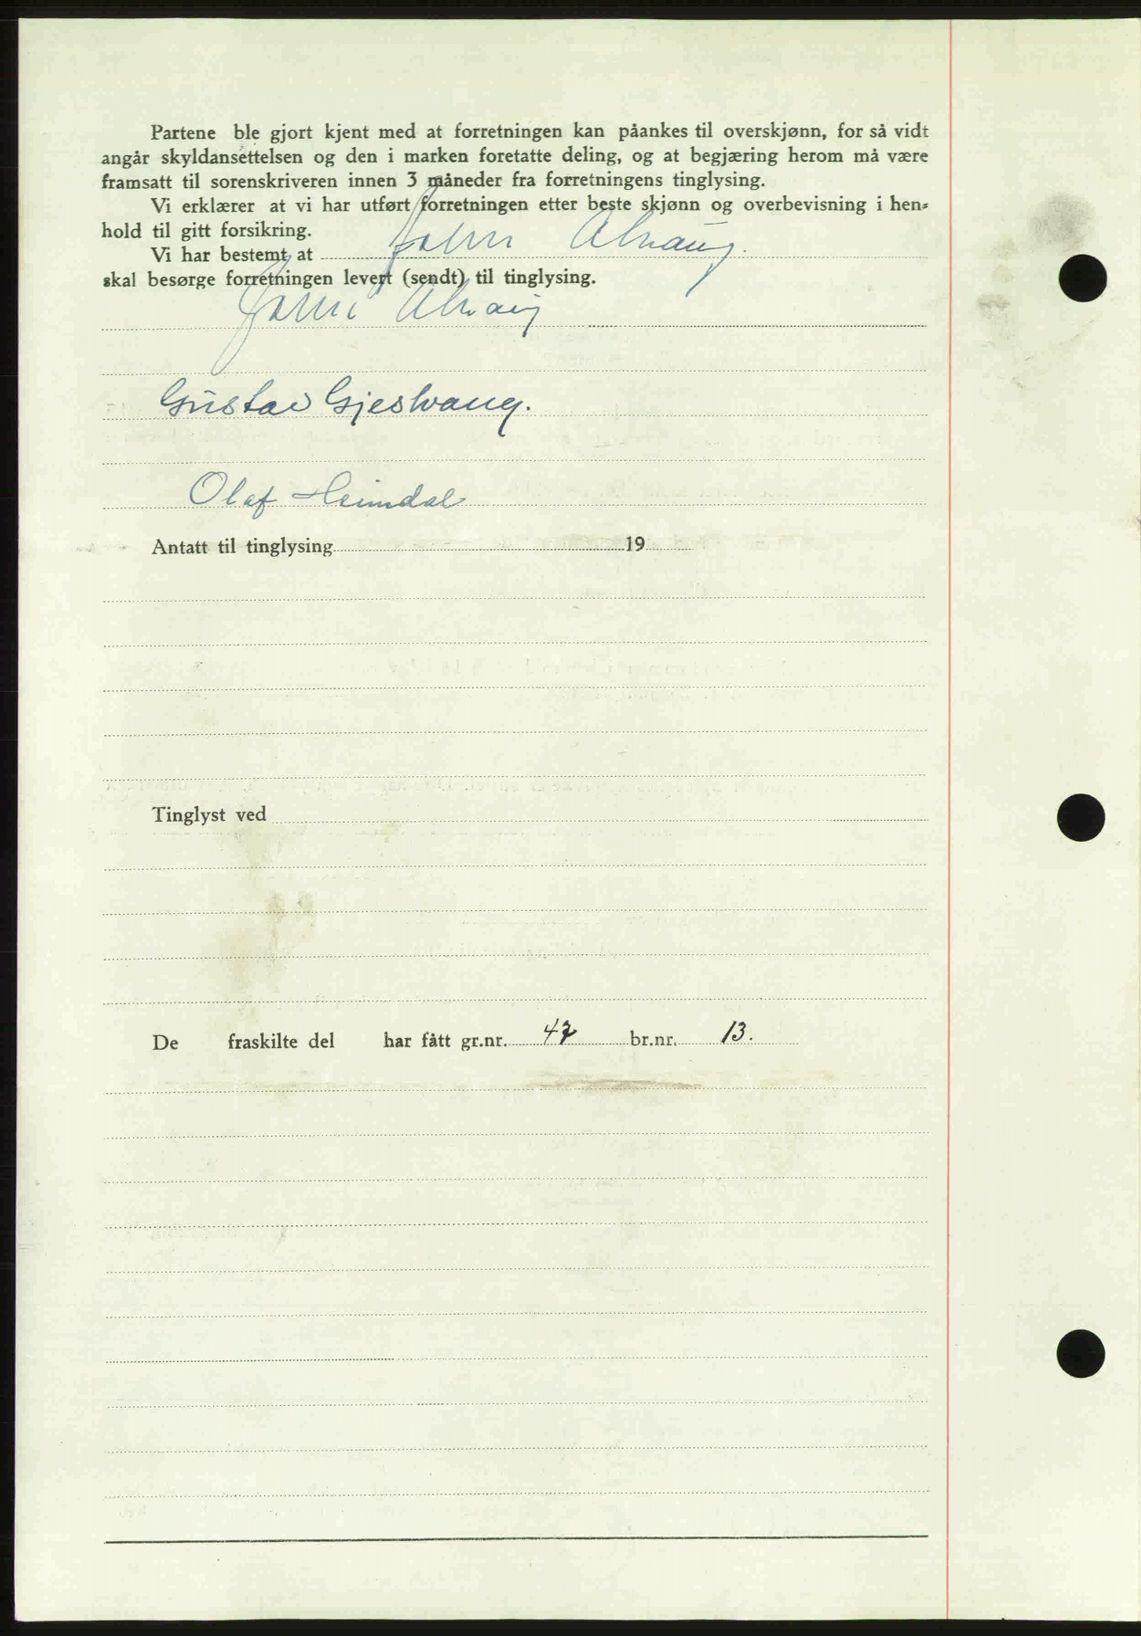 Partene ble gjort kjent med at forretningen kan påankes til overskjønn, for så vidt
angår skyldansettelsen og den i marken foretatte deling, og at begjæring herom må være
framsatt til sorenskriveren innen 3 måneder fra forretningens tinglysing.
Vi erklærer at vi har utført forretningen etter beste skjønn og overbevisning i hen-
hold til gitt forsikring.
Vi har bestemt at John Alhaug.
skal besørge forretningen levert (sendt) til tinglysing.
John Alhaug
Gustav Gjeslvang.
Olaf Heimdal
Antatt til tinglysing 19
Tinglyst ved
De fraskilte del har fått gr.nr. 47 br.nr. 13.